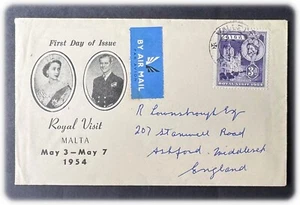 First Day of Issue
BY AIR MAIL
MALTA
ROYAL VISIT 1954
Royal Visit
MALTA
May 3—May 7
1954
R Lownsbrough Esq
207 Stanwell Road
Ashford. Middlesex
England